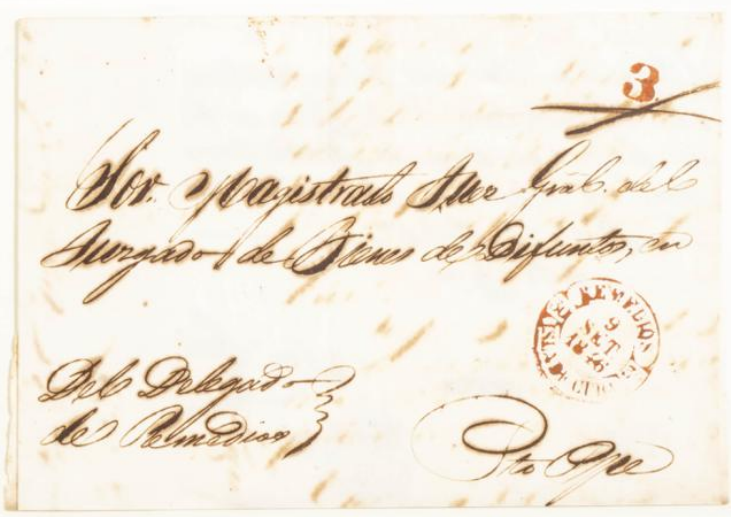 3
Sor. Magistrado Juez Gral. del
Juzgado de Bienes de Difuntos, en
REMEDIOS
9
1845
Del Delegado
de Remedios
Pto Ppe